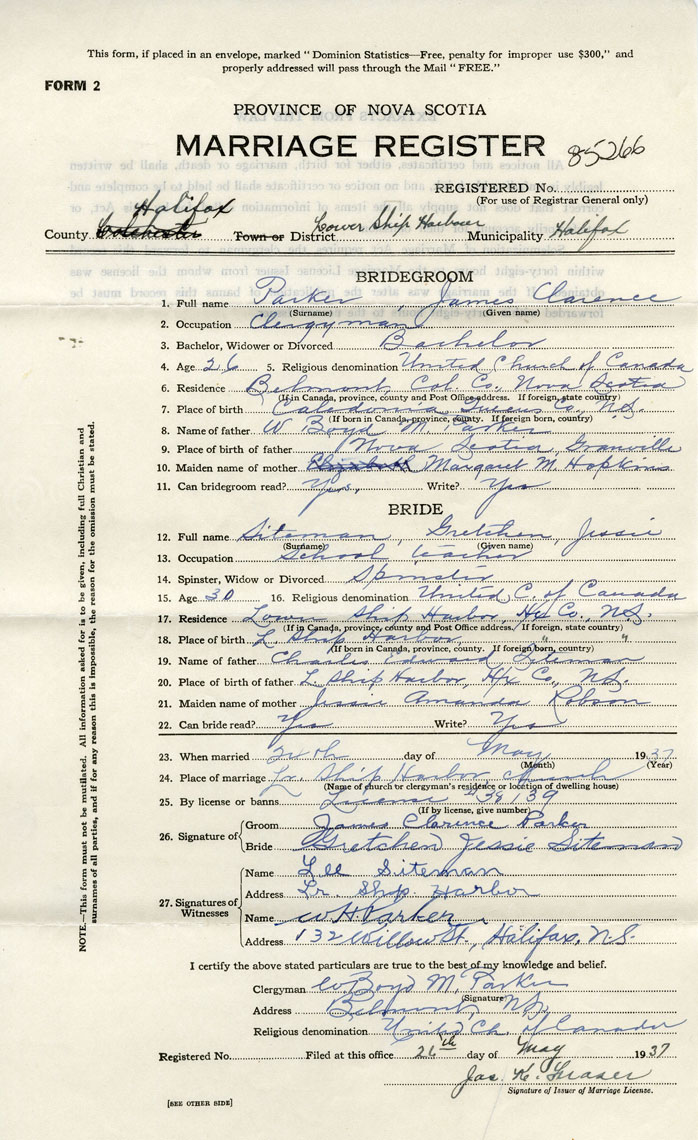 This form, if placed in an envelope, marked "Dominion Statistics—Free, penalty for improper use $300," and
properly addressed will pass through the Mail "FREE."
FORM 2
PROVINCE OF NOVA SCOTIA
MARRIAGE REGISTER 85266
REGISTERED No.
(For use of Registrar General only)
Halifax
County Colchester Town or District Lower Ship Harbour Municipality Halifax
BRIDEGROOM
1. Full name Parker, James Clarence
(Surname) (Given name)
2. Occupation Clergyman
3. Bachelor, Widower or Divorced Bachelor
4. Age 26 5. Religious denomination United Church of Canada
6. Residence Belmont, Col. Co., Nova Scotia
(If in Canada, province, county and Post Office address. If foreign, state country)
7. Place of birth Caledonia Queens Co., N.S.
(If born in Canada, province, county. If foreign born, country)
8. Name of father W Boyd M. Parker
9. Place of birth of father Nova Scotia, Granville
10. Maiden name of mother Elizabeth Margaret M Hopkins
11. Can bridegroom read? Yes, Write? Yes
BRIDE
12. Full name Siteman, Gretchen Jessie
(Surname) (Given name)
13. Occupation School teacher
14. Spinster, Widow or Divorced Spinster
15. Age 30 16. Religious denomination United C. of Canada
17. Residence Lower Ship Harbor, Hx Co., N.S.
(If in Canada, province, county and Post Office address. If foreign, state country)
18. Place of birth L. Ship Harbor, " "
(If born in Canada, province, county. If foreign born, country)
19. Name of father Charles Edward Siteman
20. Place of birth of father L. Ship Harbor, Hx Co., N.S.
21. Maiden name of mother Jessie Amanda Robson
22. Can bride read? Yes Write? Yes
23. When married day of May 1937
(Month) (Year)
24. Place of marriage Lr. Ship Harbor church
(Name of church or clergyman's residence or location of dwelling house)
25. By license or banns License # 39139
(If by license, give number)
26. Signature of
Groom James Clarence Parker
Bride Gretchen Jessie Siteman
27. Signatures of Witnesses
Name Lee Siteman
Address Lr. Ship Harbor
Name W H Parker
Address 132 Willow St., Halifax, N.S.
I certify the above stated particulars are true to the best of my knowledge and belief.
Clergyman W Boyd M. Parker
(Signature)
Address Belmont, N.S.
Religious denomination United Ch. of Canada
Registered No. Filed at this office 26th day of May 1937
Jas. K. Fraser
Signature of Issuer of Marriage License.
[SEE OTHER SIDE]
NOTE.—This form must not be mutilated. All information asked for is to be given, including full Christian and
surnames of all parties, and if for any reason this is impossible, the reason for the omission must be stated.